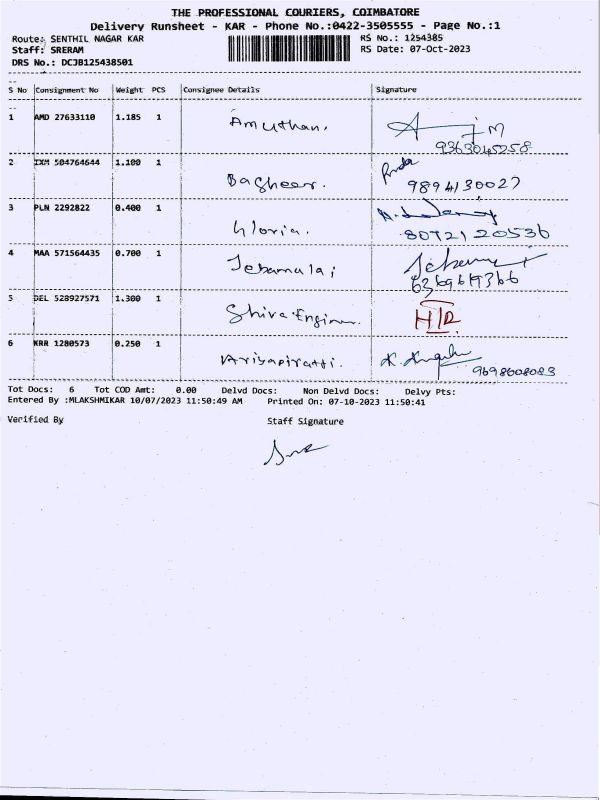 THE PROFESSIONAL COURIERS, COIMBATORE
Delivery Runsheet - KAR - Phone No.:0422-3505555 - Page No.:1
Route: SENTHIL NAGAR KAR RS No.: 1254385
Staff: SRERAM RS Date: 07-Oct-2023
DRS No.: DCJB125438501
S No Consignment No Weight PCS Consignee Details Signature
1 AMD 27633110 1.185 1 Amuthan.
9363045258
2 IXM 504764644 1.100 1 Bagheer.
9894130027
3 PLN 2292822 0.400 1 Gloria.
8072120536
4 MAA 571564435 0.700 1 Jebamalai
6369619366
5 DEL 528927571 1.300 1 Shiva Engineer. H/R
6 KRR 1280573 0.250 1 Ariyapiratti.
9698608083
Tot Docs: 6 Tot COD Amt: 0.00 Delvd Docs: Non Delvd Docs: Delvy Pts:
Entered By :MLAKSHMIKAR 10/07/2023 11:50:49 AM Printed On: 07-10-2023 11:50:41
Verified By Staff Signature